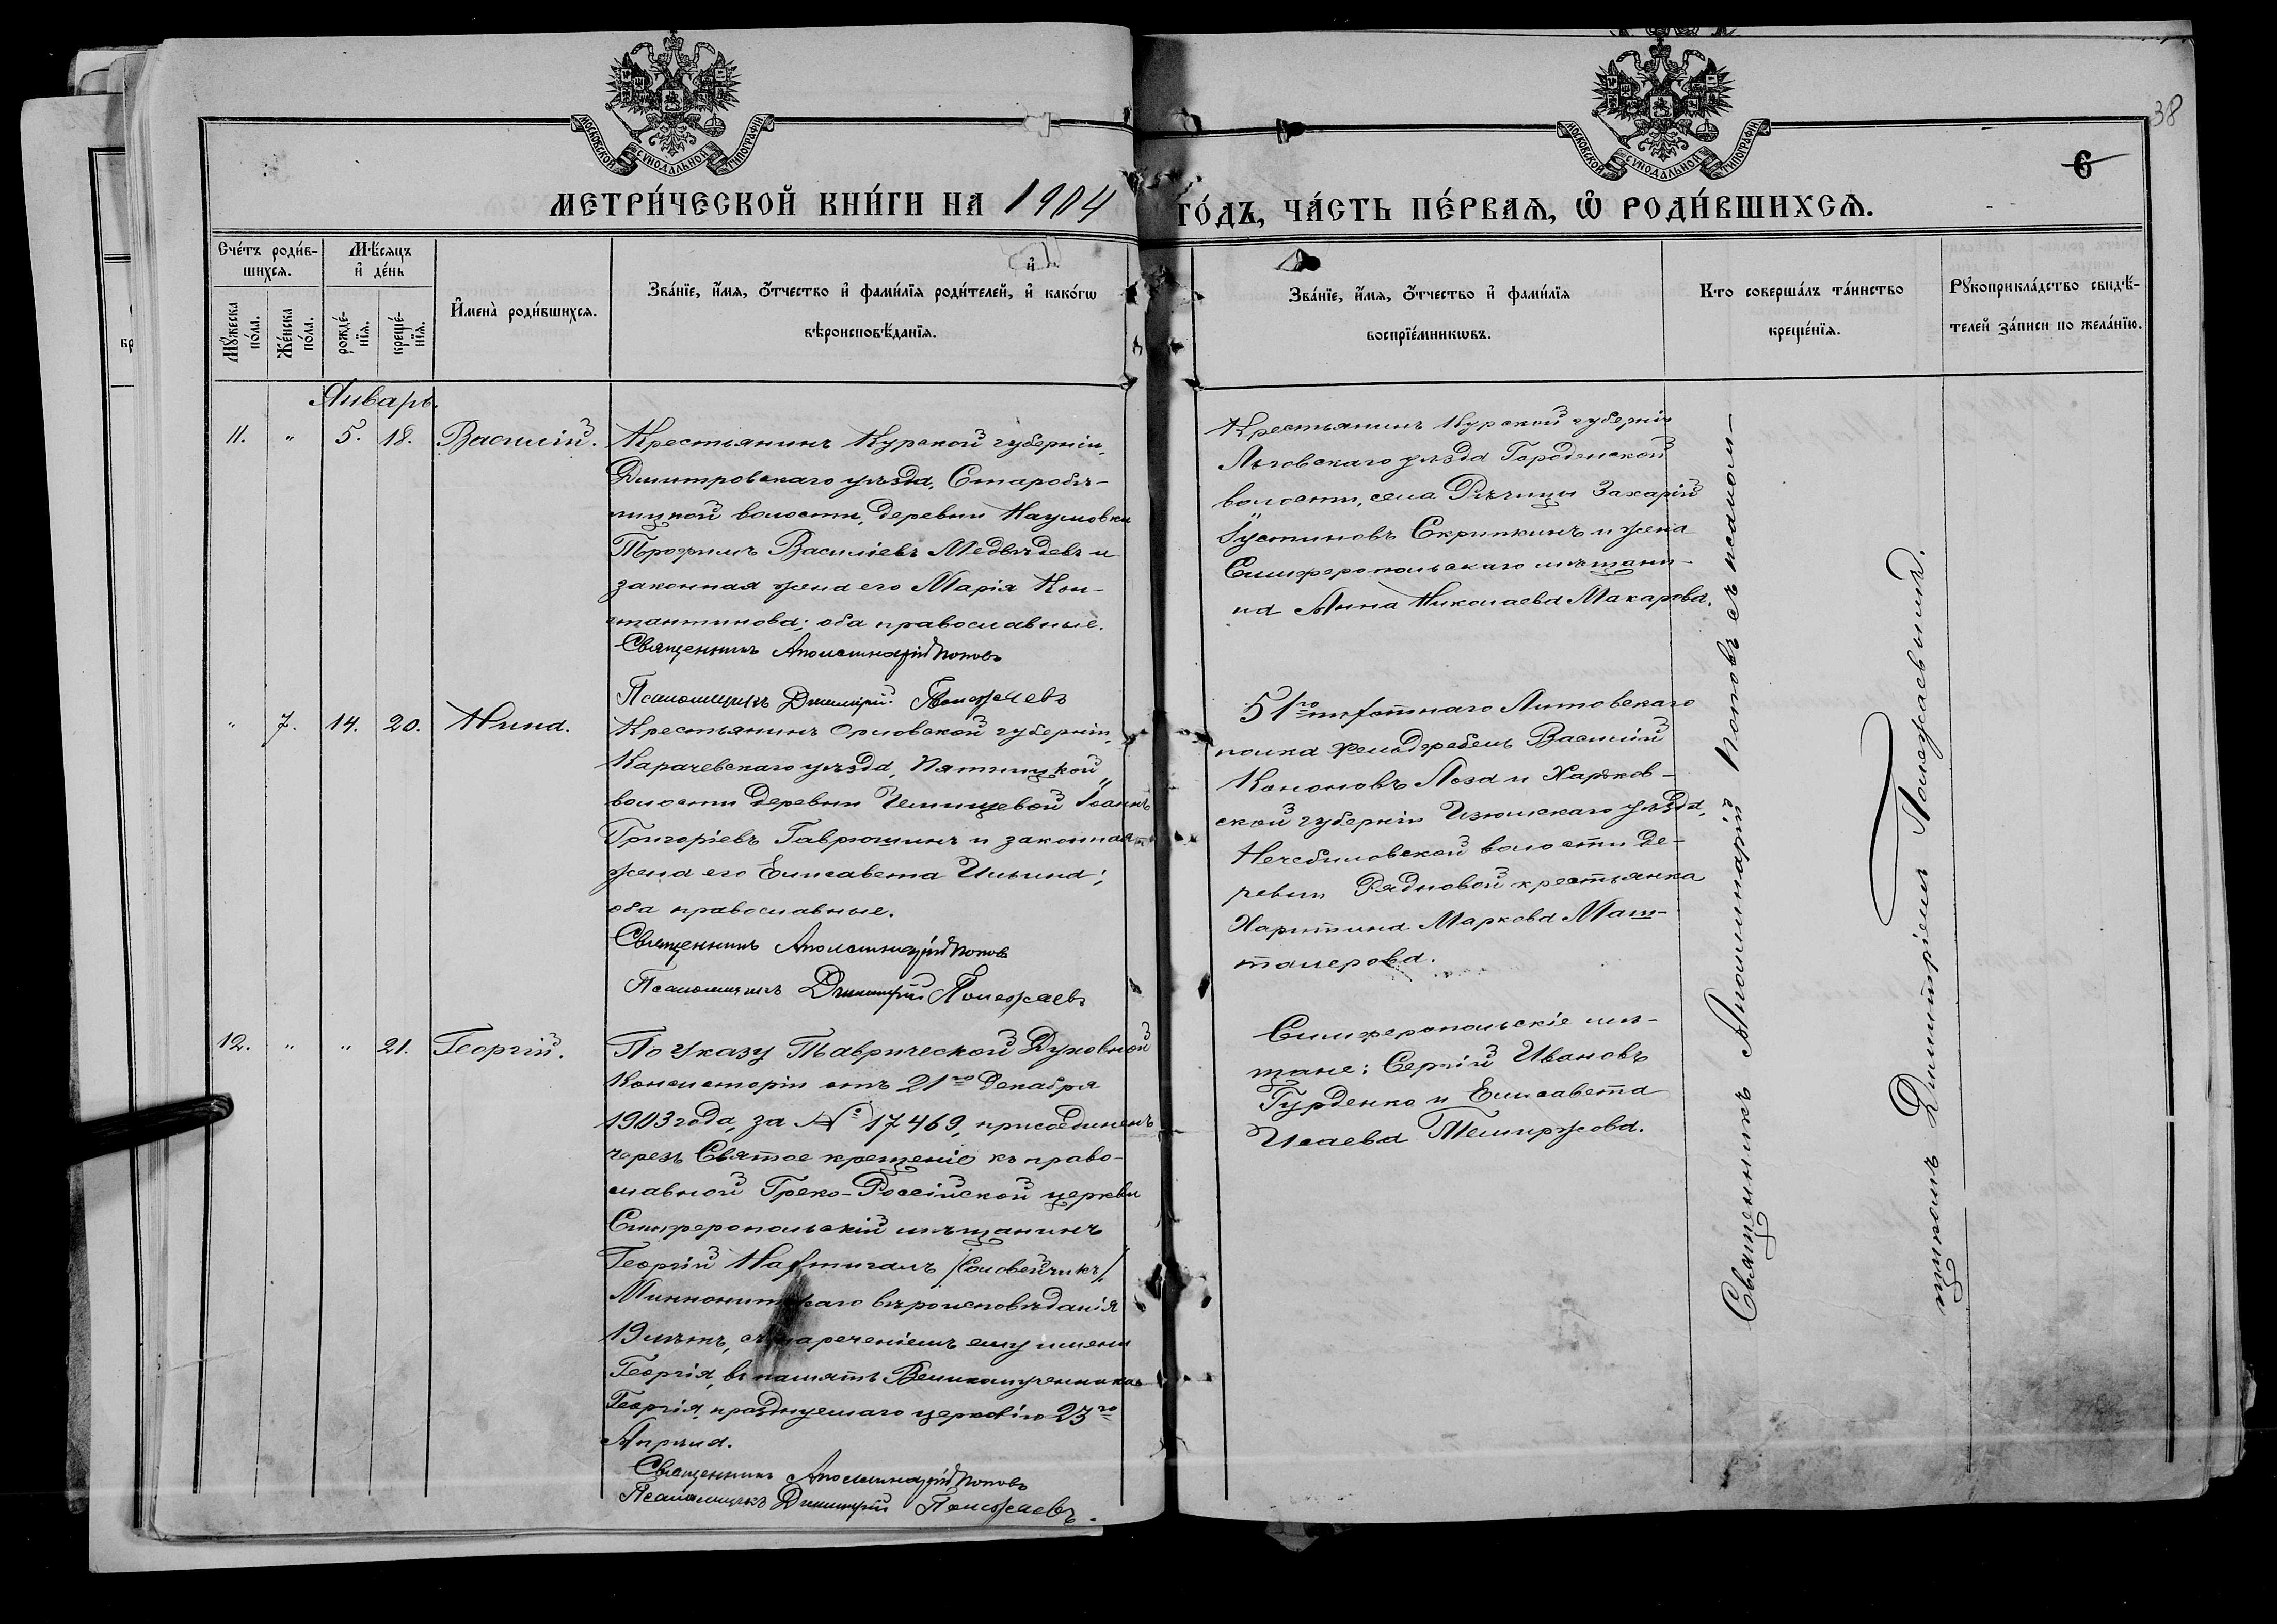 МОСКОВСКОЙ СѴНОДАЛЬНОЙ ТИПОГРАФІИ
МОСКОВСКОЙ СѴНОДАЛЬНОЙ ТИПОГРАФІИ
38
6
МЕТРИ́ЧЕСКОЙ КНИ́ГИ НА 1904 ГО́ДЪ, ЧА́СТЬ ПЕ́РВАЯ, Ѡ РОДИ́ВШИХСѦ.
Сче́тъ роди́в-
шихся.
Мѣ́сяцъ
и҆ де́нь
Мꙋ́жеска
по́ла.
Же́нска
по́ла.
рожде́-
нїя.
креще́-
нїя.
И҆мена̀ роди́вшихся.
Зва́нїе, и҆́мя, ѻ҆́тчество и҆ фами́лїя роди́телей, и҆ како́гѡ
вѣроисповѣ́данїя.
Зва́нїе, и҆́мя, ѻ҆́тчество и҆ фами́лїя
воспрїе́мникѡвъ.
Кто соверша́лъ та́инство
креще́нїя.
Рꙋкоприкла́дство свидѣ́-
телей за́писи по жела́нїю.
Январь.
11. " 5. 18. Василій.
Крестьянинъ Курской губерніи,
Дмитровскаго уѣзда, Старобѣ-
лицкой волости, деревни Наумовки
Трофимъ Василіевъ Медвѣдевъ и
законная жена его Марія Кон-
стантинова; оба православные.
Священникъ Аполлинарій Поповъ
Псаломщикъ Димитрій Полежаевъ
Крестьянинъ Курской губерніи
Льговскаго уѣзда Городенской
волости, села Рѣчицы Захарій
Іустиновъ Скрипкинъ и жена
Симферопольскаго мѣщани-
на Анна Николаева Макарова.
" 7. 14. 20. Нина.
Крестьянинъ Орловской губерніи,
Карачевскаго уѣзда, Пятницкой
волости деревни Іоаннъ
Григоріевъ Гаврюшинъ и законная
жена его Елисавета Ильина;
оба православные.
Священникъ Аполлинарій Поповъ
Псаломщикъ Димитрій Полежаевъ
51го пѣхотнаго Литовскаго
полка фельдфебель Василій
Кононовъ Лоза и Харьков-
ской губерніи Изюмскаго уѣзда,
волости де-
ревни Рядновой крестьянка
Харитина Маркова Маш-
талерова.
12. " " 21. Георгій.
По указу Таврической Духовной
Консисторіи отъ 21го Декабря
1903 года, за № 17469, присоединенъ
черезъ Святое крещеніе къ право-
славной Греко-Россійской церкви
Симферопольскій мѣщанинъ
Георгій Нахтигалъ /Соловейчикъ/,
вѣроисповѣданія
19 лѣтъ, съ нареченіемъ ему имени
Георгія, въ память Великомученника
Георгія, празднуемаго церковію 23го
Апрѣля.
Священникъ Аполлинарій Поповъ
Псаломщикъ Димитрій Полежаевъ.
Симферопольскіе мѣ-
щане: Сергій Ивановъ
Гурденко и Елисавета
Исаева
Священникъ Аполлинарій Поповъ съ псалом-
щикомъ Димитріемъ Полежаевымъ.